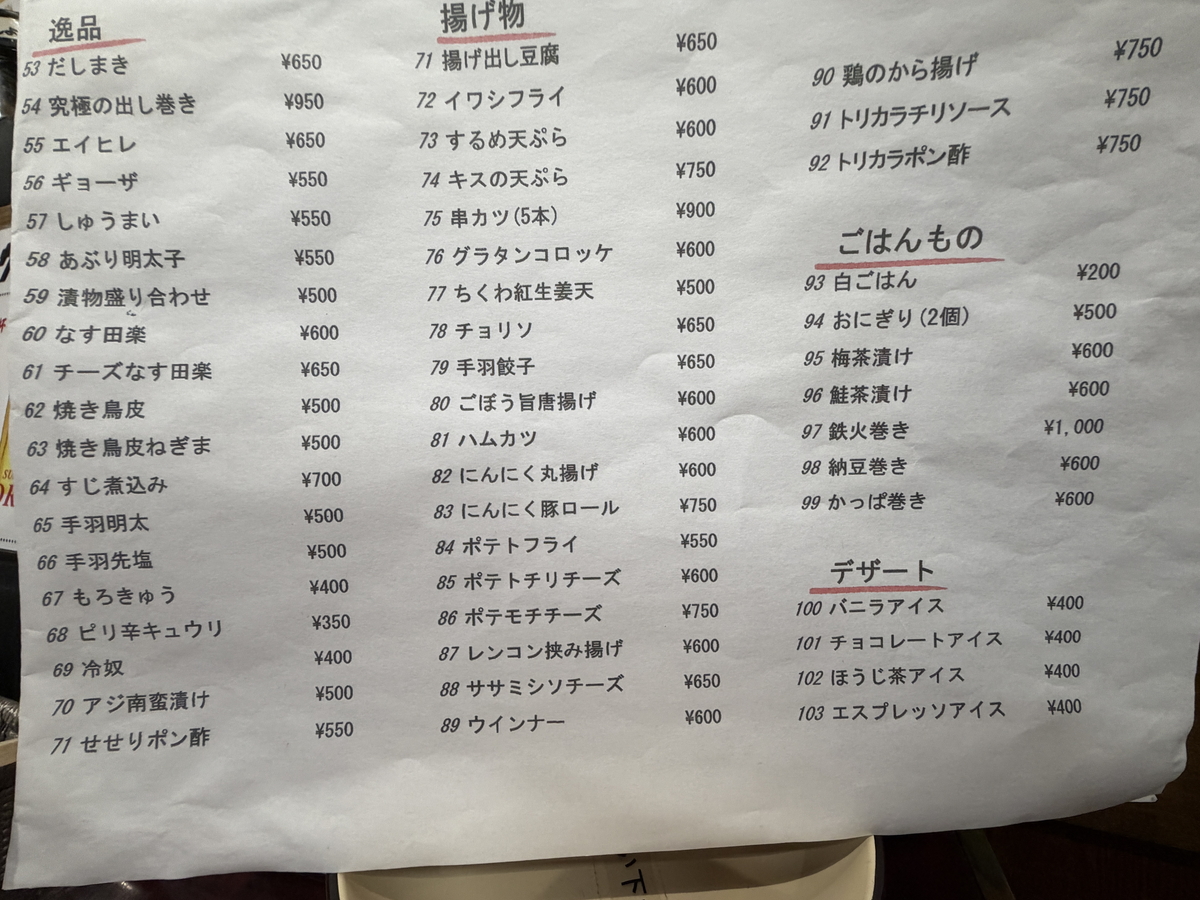 逸品
53 だしまき ¥650
54 究極の出し巻き ¥950
55 エイヒレ ¥650
56 ギョーザ ¥550
57 しゅうまい ¥550
58 あぶり明太子 ¥550
59 漬物盛り合わせ ¥500
60 なす田楽 ¥600
61 チーズなす田楽 ¥650
62 焼き鳥皮 ¥500
63 焼き鳥皮ねぎま ¥500
64 すじ煮込み ¥700
65 手羽明太 ¥500
66 手羽先塩 ¥500
67 もろきゅう ¥400
68 ピリ辛キュウリ ¥350
69 冷奴 ¥400
70 アジ南蛮漬け ¥500
71 せせりポン酢 ¥550
揚げ物
71 揚げ出し豆腐 ¥650
72 イワシフライ ¥600
73 するめ天ぷら ¥600
74 キスの天ぷら ¥750
75 串カツ(5本) ¥900
76 グラタンコロッケ ¥600
77 ちくわ紅生姜天 ¥500
78 チョリソ ¥650
79 手羽餃子 ¥650
80 ごぼう旨唐揚げ ¥600
81 ハムカツ ¥600
82 にんにく丸揚げ ¥600
83 にんにく豚ロール ¥750
84 ポテトフライ ¥550
85 ポテトチリチーズ ¥600
86 ポテモチチーズ ¥750
87 レンコン挟み揚げ ¥600
88 ササミシソチーズ ¥650
89 ウインナー ¥600
90 鶏のから揚げ ¥750
91 トリカラチリソース ¥750
92 トリカラポン酢 ¥750
ごはんもの
93 白ごはん ¥200
94 おにぎり(2個) ¥500
95 梅茶漬け ¥600
96 鮭茶漬け ¥600
97 鉄火巻き ¥1,000
98 納豆巻き ¥600
99 かっぱ巻き ¥600
デザート
100 バニラアイス ¥400
101 チョコレートアイス ¥400
102 ほうじ茶アイス ¥400
103 エスプレッソアイス ¥400